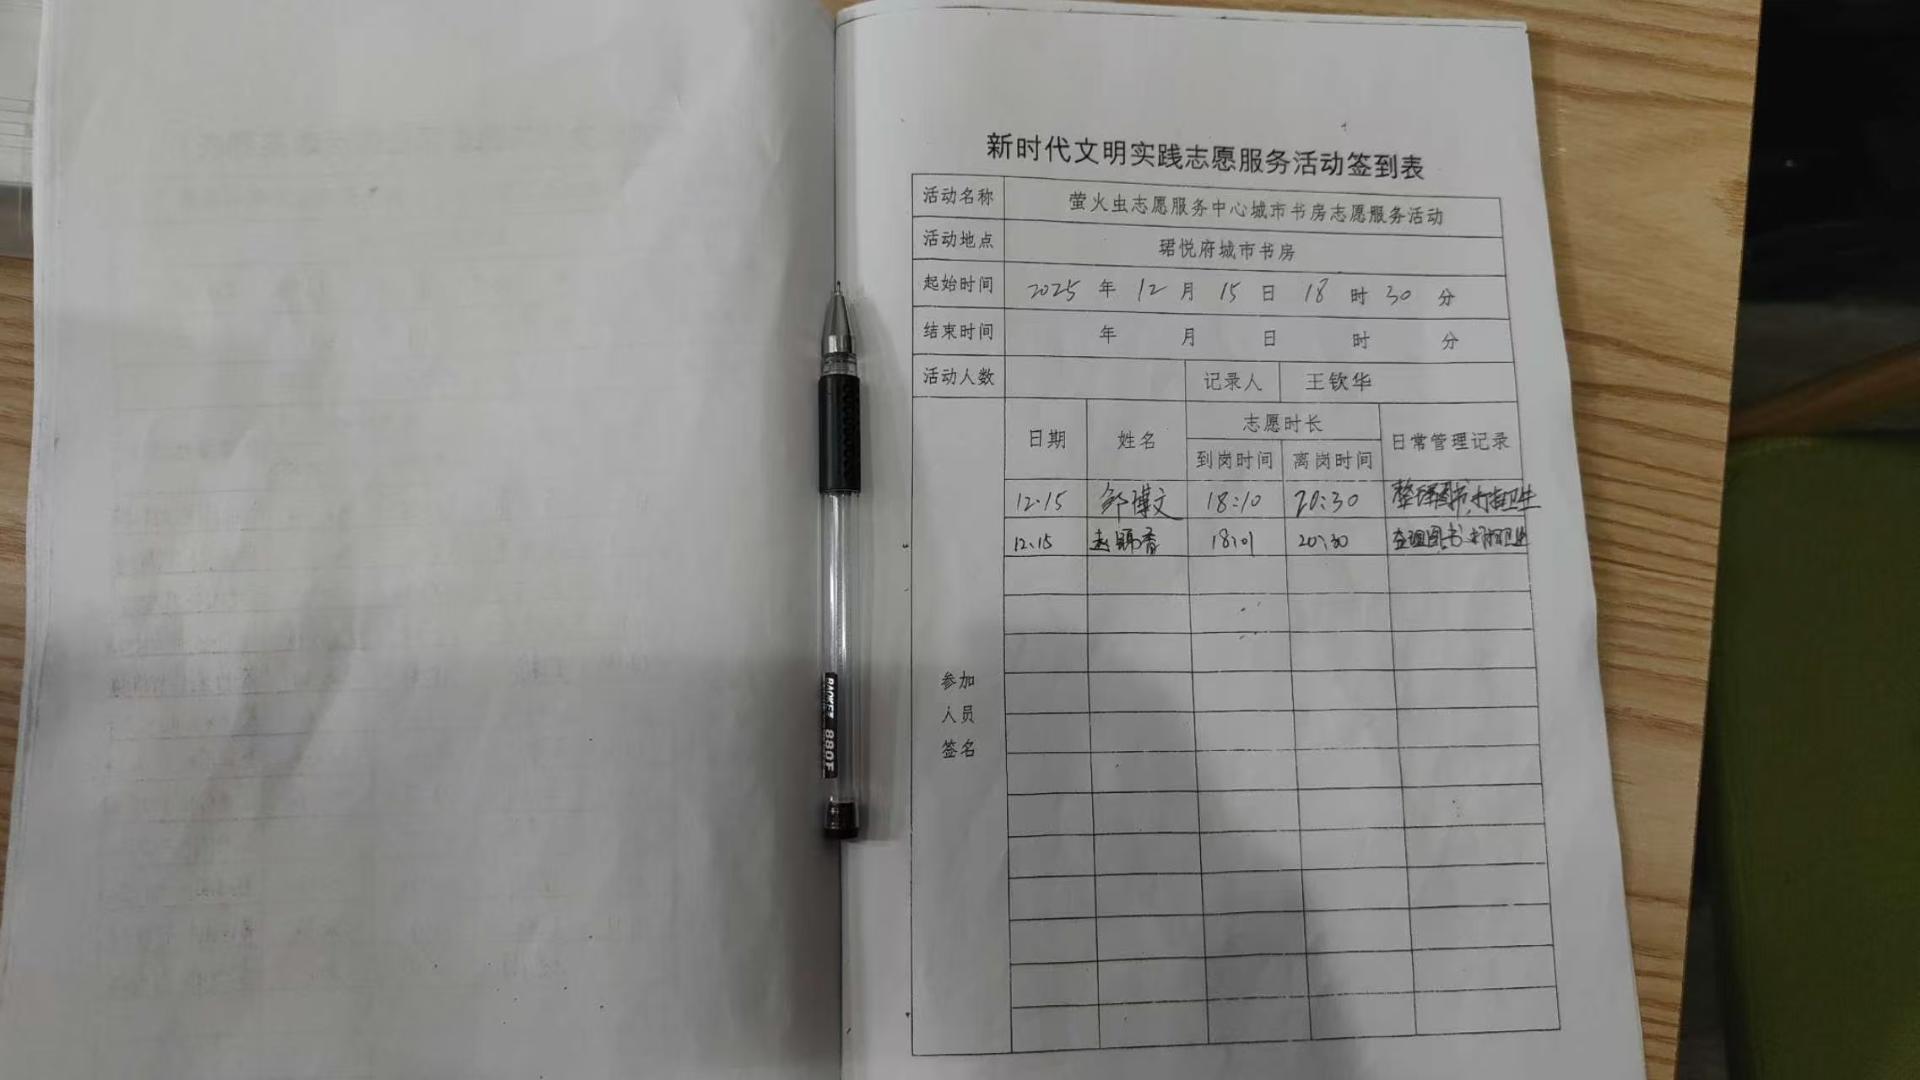 新时代文明实践志愿服务活动签到表
活动名称 萤火虫志愿服务中心城市书房志愿服务活动
活动地点 珺悦府城市书房
起始时间 2025 年 12 月 15 日 18 时 30 分
结束时间 年 月 日 时 分
活动人数 记录人 王钦华
日期 姓名 志愿时长 日常管理记录
到岗时间 离岗时间
12.15 邹博文 18:10 20:30 整理图书,打扫卫生
12.15 赵 香 18:01 20:30 整理图书 打扫卫生
参加
人员
签名
880F